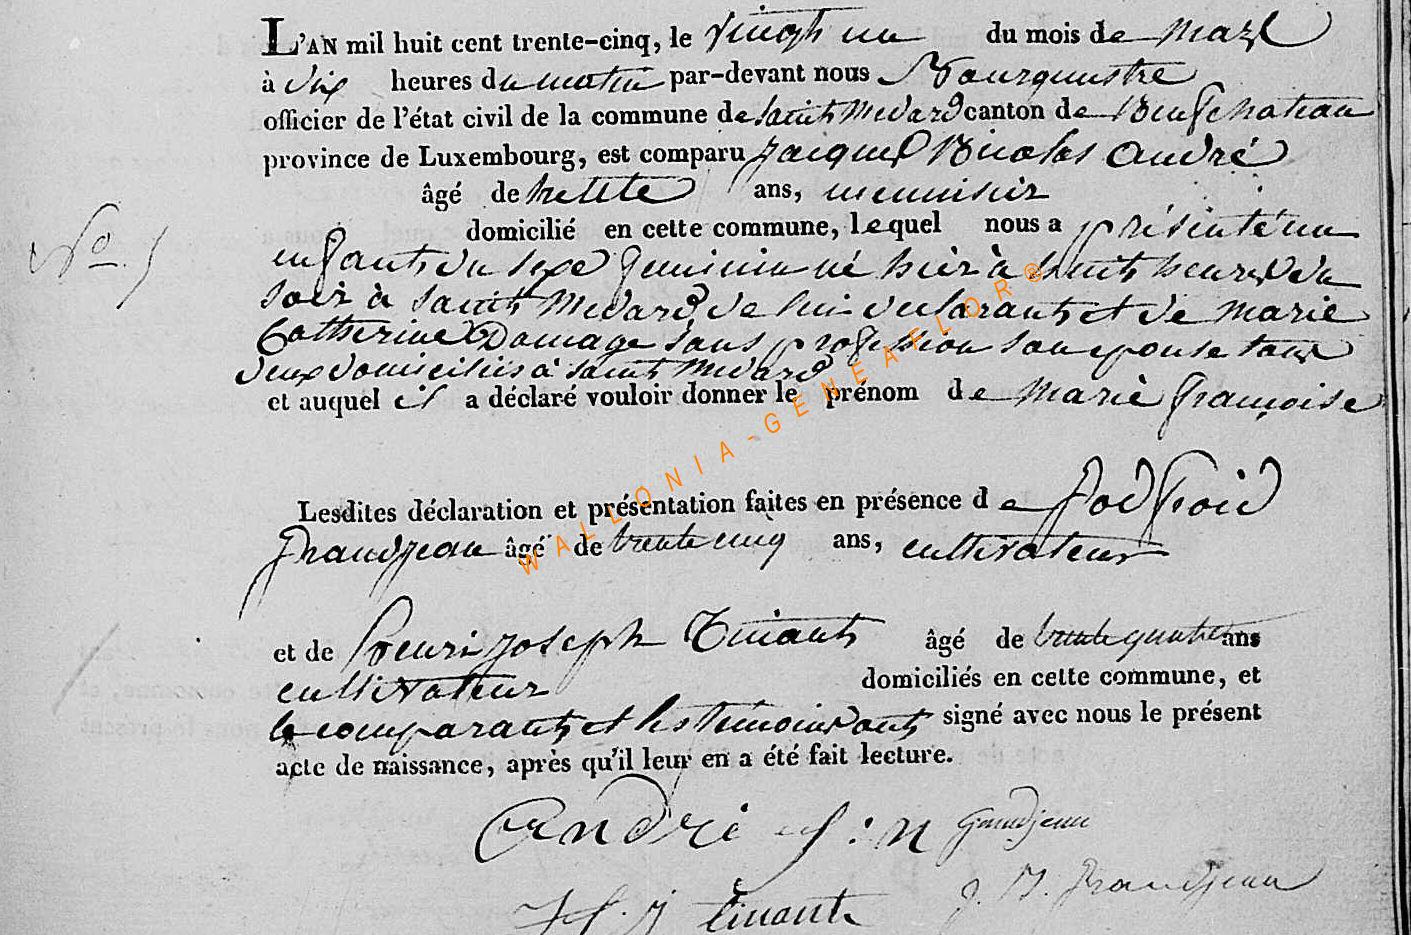 L'AN mil huit cent trente-cinq, le vingt un du mois de mars
à dix heures du matin par-devant nous Bourguemstre
officier de l'état civil de la commune de Saint Medard canton de Neufchateau
province de Luxembourg, est comparu Jacques Nicolas André
âgé de trente ans, menuisier
domicilié en cette commune, lequel nous a présenté un
enfant du sexe feminin né hier à huit heures du
soir à Saint Medard de lui declarant et de Marie
Catherine Damage sans profession son epouse tous
deux domiciliés à Saint Medard
et auquel il a déclaré vouloir donner le prénom de Marie françoise
No. 5
Lesdites déclaration et présentation faites en présence de
Grandjean âgé de trente cinq ans, cultivateur
et de Henri Joseph Tinant âgé de trente quatre ans
cultivateur domiciliés en cette commune, et
le comparant et les temoins ont signé avec nous le présent
acte de naissance, après qu'il leur en a été fait lecture.
André J: N Grandjean
H. J Tinant J. N. Grandjean
WALLONIA-GENEAFLOR®